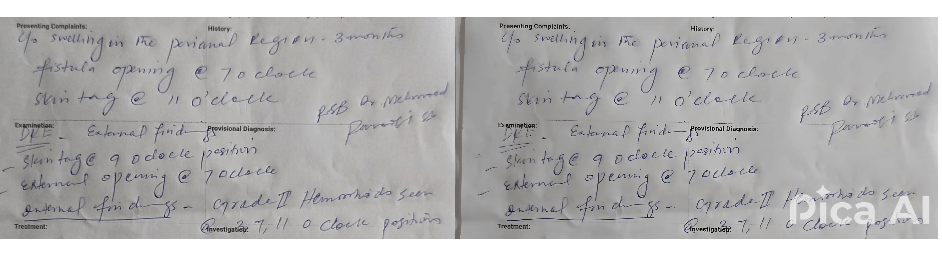 Presenting Complaints: History:
C/o swelling in the perianal Region - 3 months
fistula opening @ 7 o clock
Skin tag @ 11 o'clock
Examination: Provisional Diagnosis:
DRE - External findings
- Skin tag @ 9 o clock position
- External opening @ 7 o clock
internal findings - Grade II Hemorrhoids seen
@ 3, 7, 11 o clock positions
Treatment: Investigation:
Presenting Complaints: History:
C/o swelling in the perianal Region - 3 months
fistula opening @ 7 o clock
Skin tag @ 11 o'clock
Examination: Provisional Diagnosis:
DRE - External findings
- Skin tag @ 9 o clock position
- External opening @ 7 o clock
internal findings - Grade II Hemorrhoids seen
@ 3, 7, 11 o clock positions
Treatment: Investigation:
Pica AI